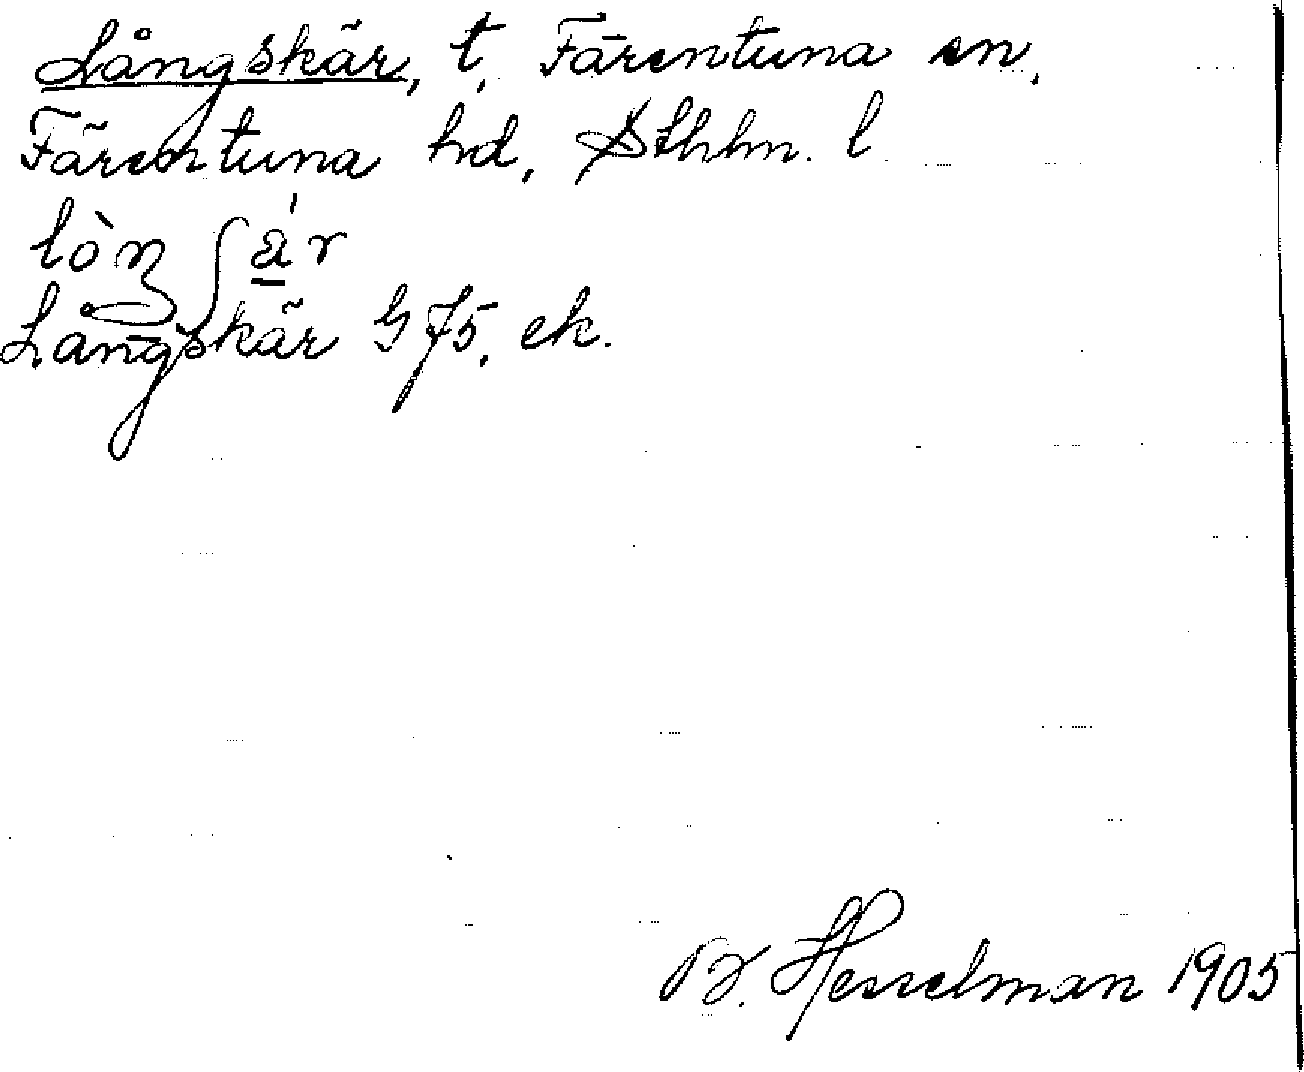 Långskär, t, Färentuna sn,
Färentuna hd, Sthlm. l
lòŋʃä́r
Långskär GJ5, ek.
B. Hesselman 1905